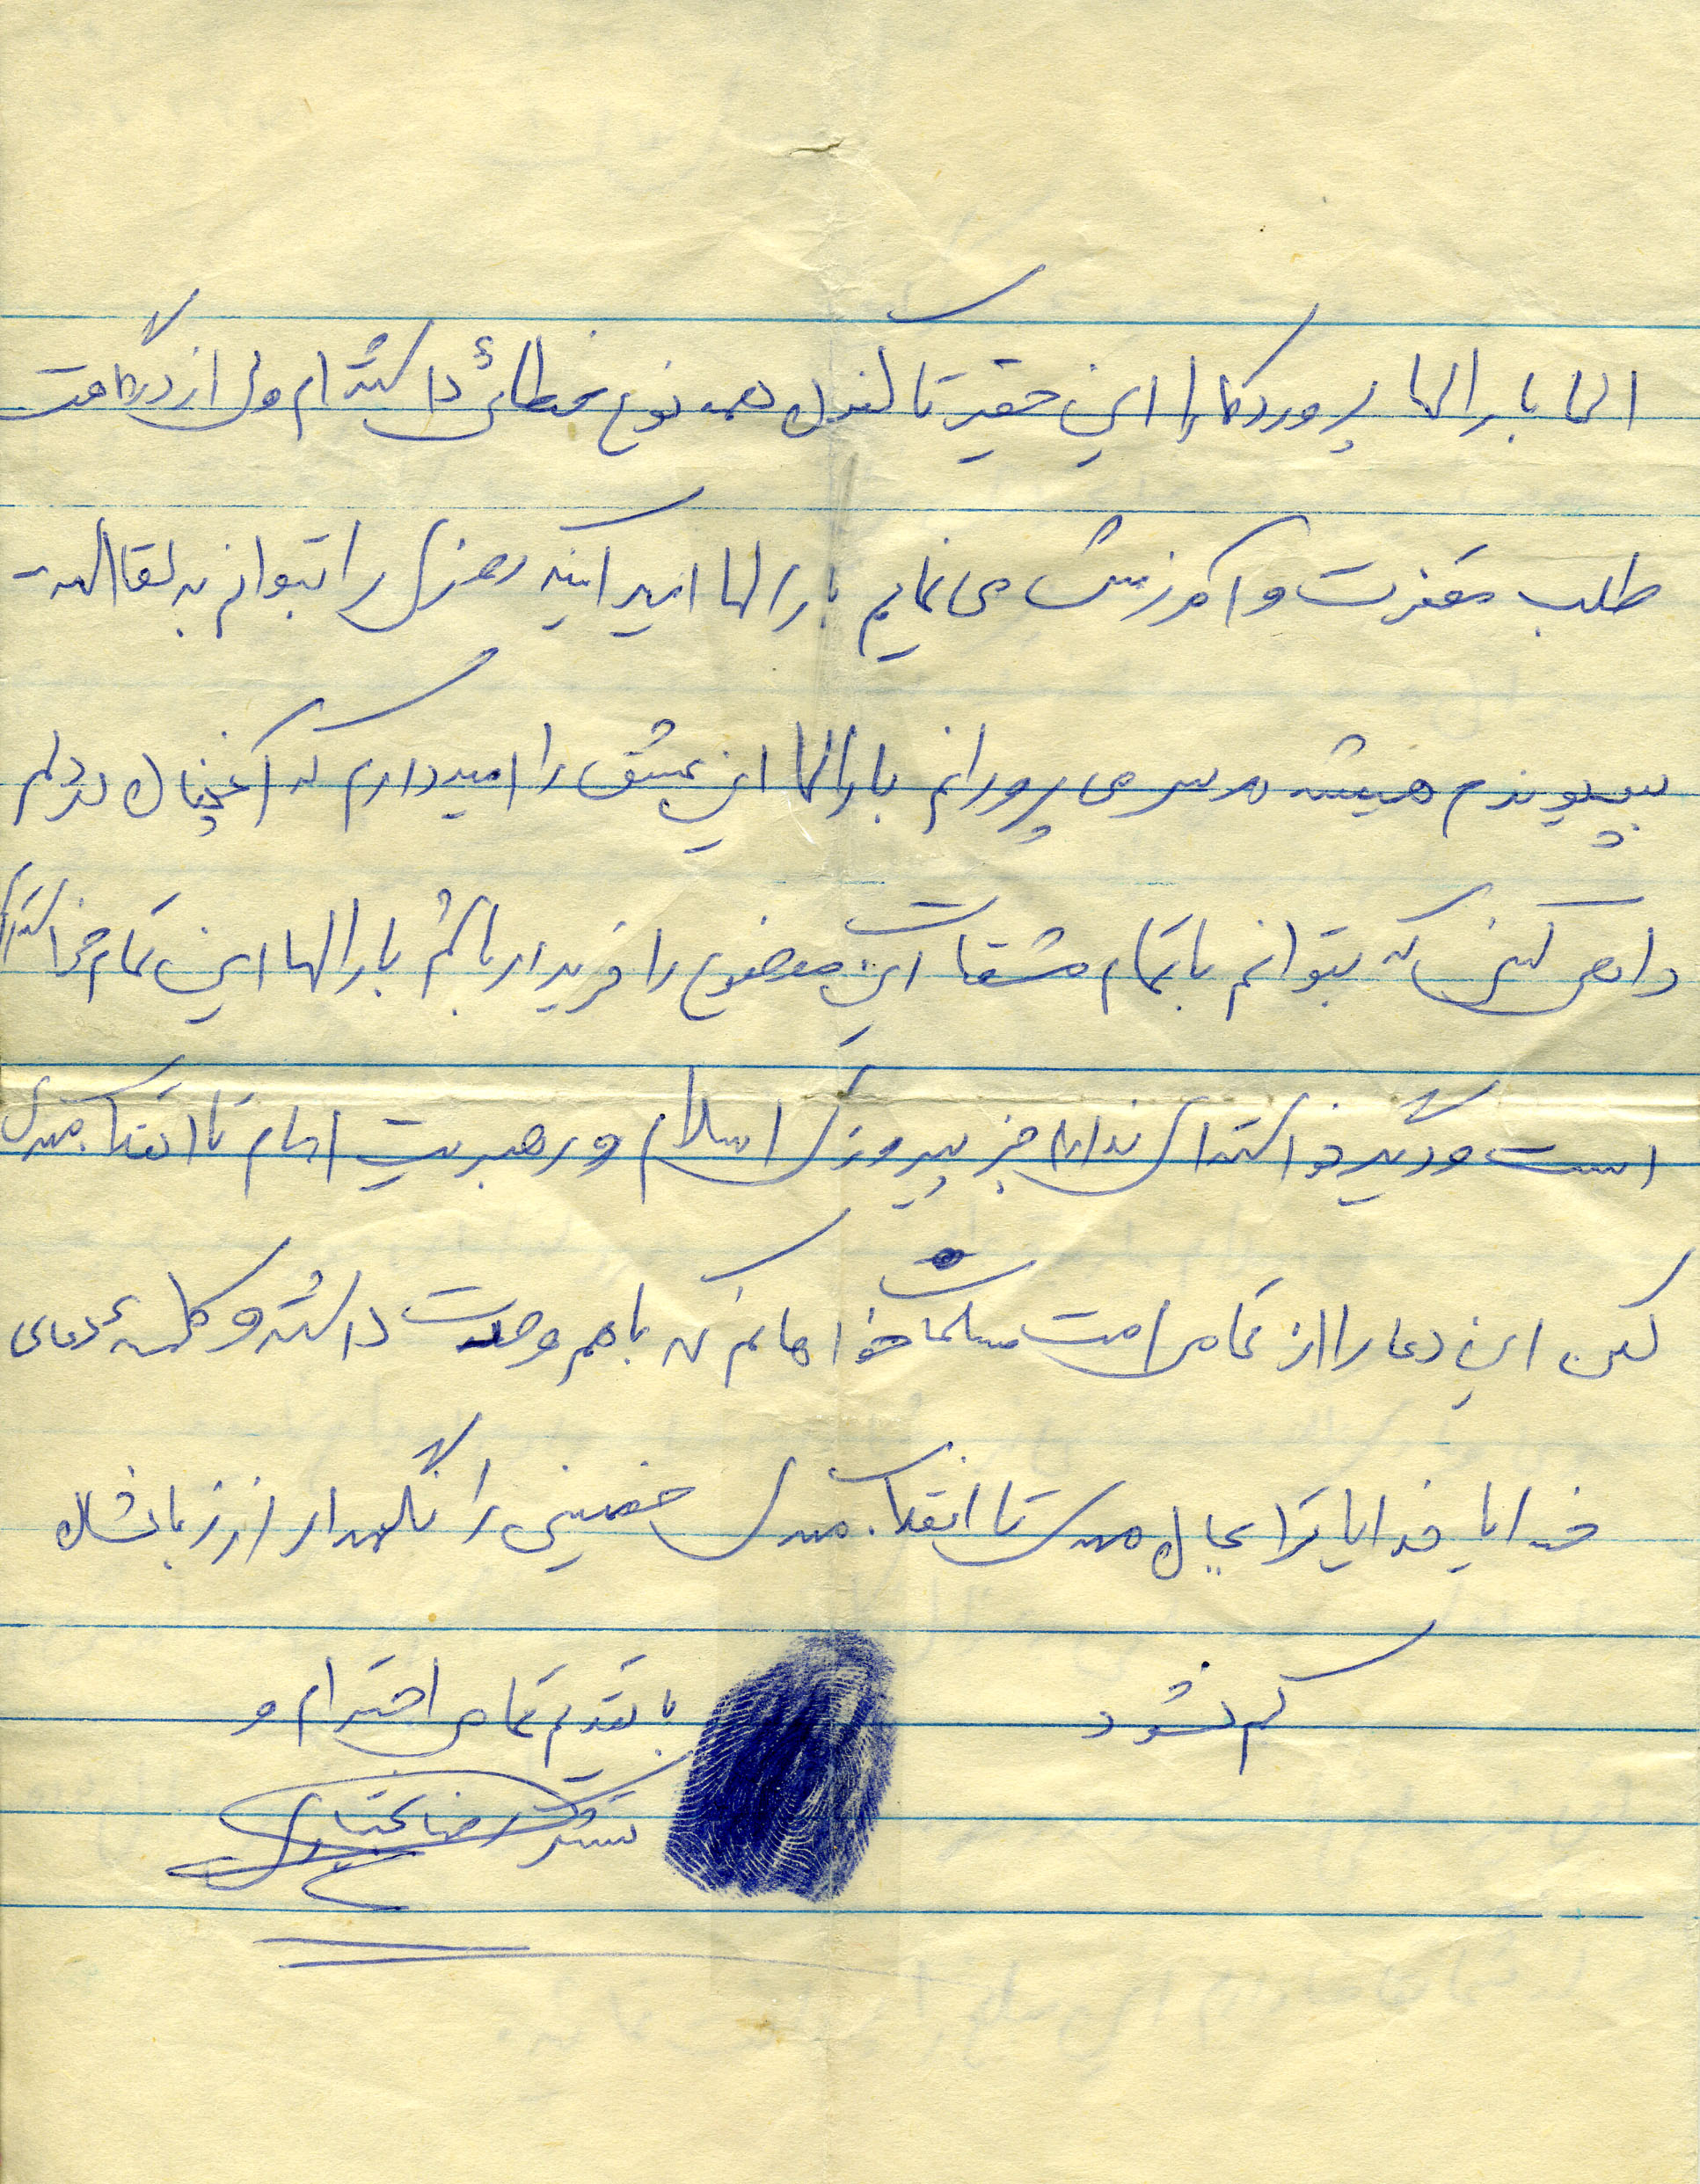 الها بارالها پروردگارا این حقیر تا کنون همه نوع خطائی داشته‌ام ولی از درگاهت
طلب مغفرت و آمرزش می نمایم بارالها امید اینکه روزی را بتوانم به لقاالله
بپیوندم همیشه در سر می پرورانم بارالها این عشق را امیدوارم که آنچنان در دلم
دهی کنی که بتوانم با تمام مشقات این موضوع را خریدار باشم بارالها این تمام خواسته‌ام
است و دیگر خواسته‌ای ندارم جز پیروزی اسلام و رهبریت امام تا انقلاب مهدی
لکن این دعا را از تمامی امت مسلمان خواهانم که با هم وحدت داشته و کلمهٔ دعای
خدایا خدایا ترا بجان مهدی تا انقلاب مهدی خمینی را نگهدار از زبانشان
کم نشود
با تقدیم تمامی احترام و
تشکر رضا بختیاری